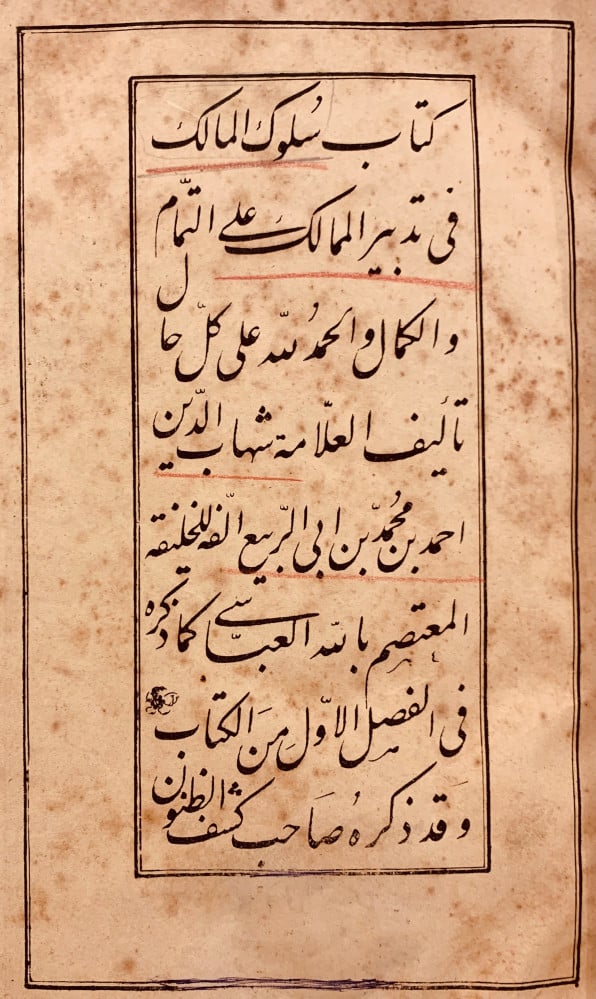 كتاب سُلوك المالك
فى تدبير الممالك على التّمام
والكمال والحمدُ لله على كلّ حال
تأليف العلّامة شهاب الدّين
احمد بن محمّد بن ابى الرّبيع الّفه للخليفة
المعتصم بالله العبّاسى كما ذكره
فى الفصل الاوّل مِنَ الكتاب
وَقد ذكرهُ صَاحب كشف الظنون